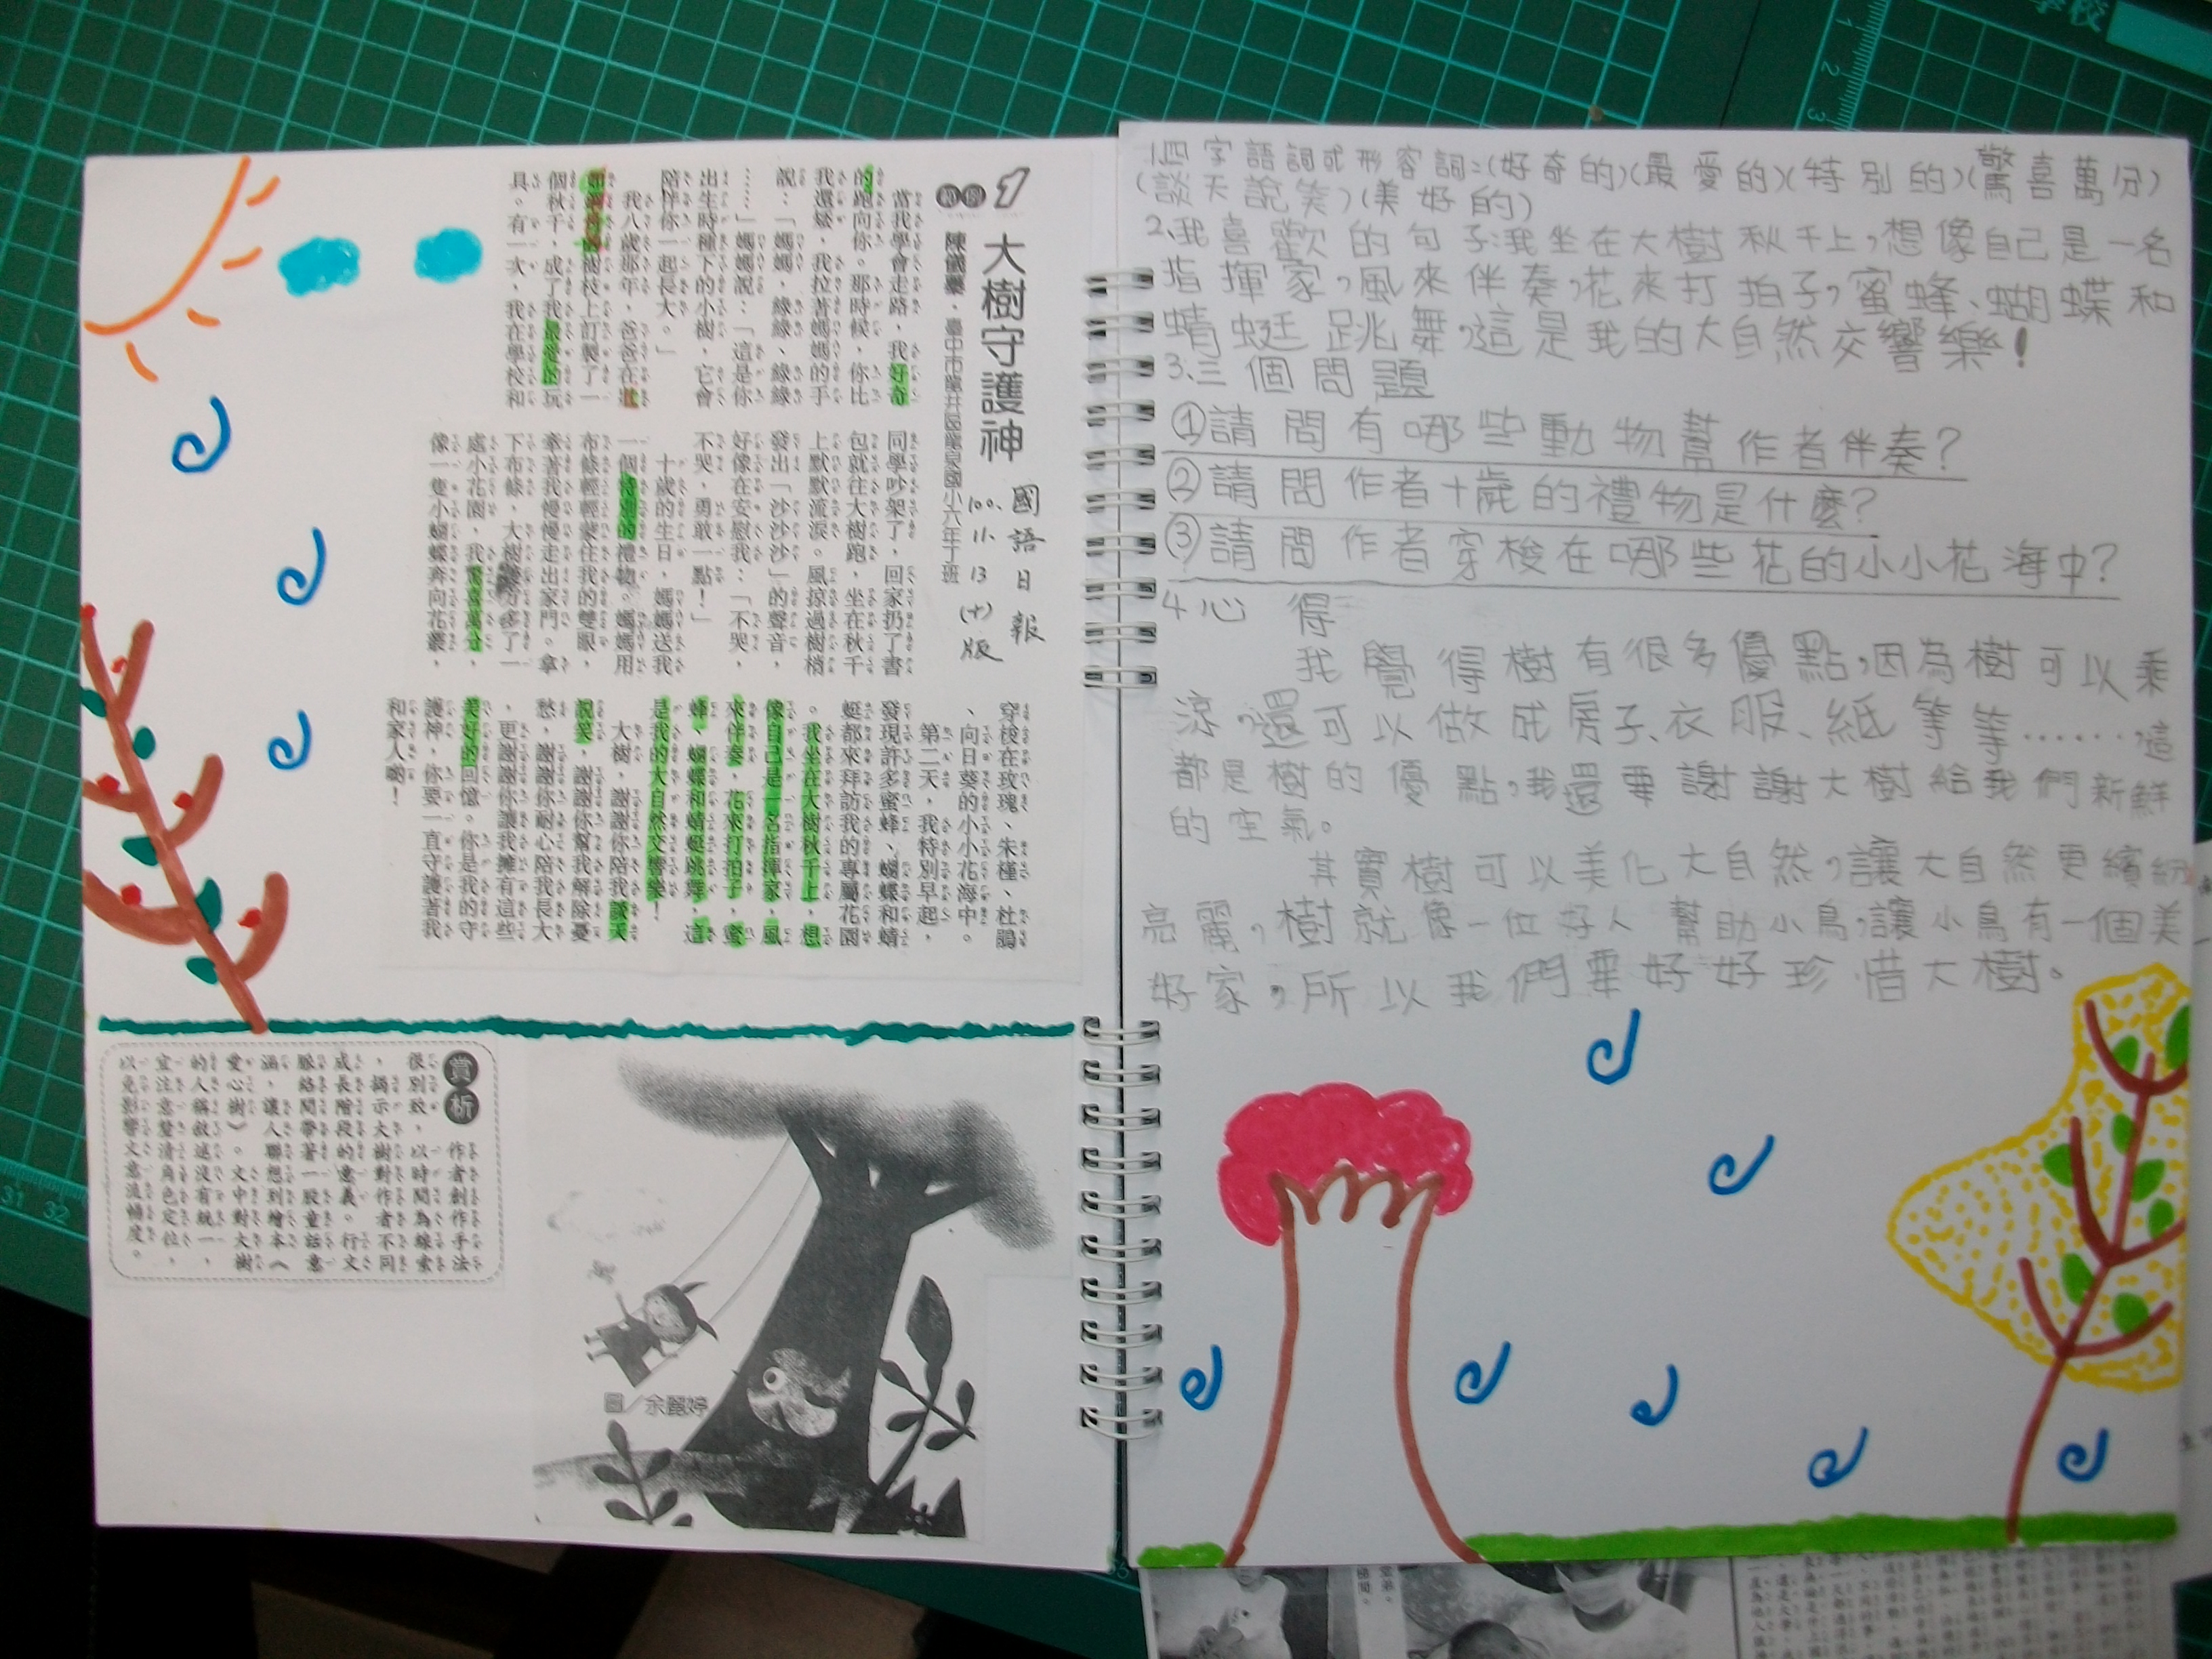 大樹守護神
陳儀蓁．臺中市龍井區龍泉國小六年丁班
國語日報
100. 11. 13 (十)版
當我學會走路，我好奇
的跑向你。那時候，你比
我還矮，我拉著媽媽的手
說：「媽媽，緣緣、緣緣
……」媽媽說：「這是你
出生時種下的小樹，它會
陪伴你一起長大。」
我八歲那年，爸爸在
樹枝上訂製了一
個秋千，成了我最愛的玩
具。有一次，我在學校和
同學吵架了，回家扔了書
包就往大樹跑，坐在秋千
上默默流淚。風掠過樹梢
發出「沙沙沙」的聲音，
好像在安慰我：「不哭，
不哭，勇敢一點！」
十歲的生日，媽媽送我
一個特別的禮物。媽媽用
布條輕輕蒙住我的雙眼，
牽著我慢慢走出家門。拿
下布條，大樹後方多了一
處小花園，我驚喜萬分，
像一隻小蝴蝶奔向花叢，
穿梭在玫瑰、朱槿、杜鵑
、向日葵的小小花海中。
第二天，我特別早起，
發現許多蜜蜂、蝴蝶和蜻
蜓都來拜訪我的專屬花園
。我坐在大樹秋千上，想
像自己是一名指揮家，風
來伴奏，花來打拍子，蜜
蜂、蝴蝶和蜻蜓跳舞，這
是我的大自然交響樂！
大樹，謝謝你陪我談天
說笑，謝謝你幫我解除憂
愁，謝謝你耐心陪我長大
，更謝謝你讓我擁有這些
美好的回憶。你是我的守
護神，你要一直守護著我
和家人喲！
賞析
作者創作手法
很別致，以時間為線索
，揭示大樹對作者不同
成長階段的意義。行文
脈絡間帶著一股童話意
涵，讓人聯想到繪本《
愛心樹》。文中對大樹
的人稱敘述沒有統一，
宜注意釐清角色定位，
以免影響文意流暢度。
圖／余麗婷
1.四字語詞或形容詞：(好奇的)(最愛的)(特別的)(驚喜萬分)
(談天說笑)(美好的)
2.我喜歡的句子：我坐在大樹秋千上，想像自己是一名
指揮家，風來伴奏，花來打拍子，蜜蜂、蝴蝶和
蜻蜓跳舞，這是我的大自然交響樂！
3.三個問題
①請問有哪些動物幫作者伴奏？
②請問作者十歲的禮物是什麼？
③請問作者穿梭在哪些花的小小花海中？
4.心得
我覺得樹有很多優點，因為樹可以乘
涼，還可以做成房子、衣服、紙等等……，這
都是樹的優點，我還要謝謝大樹給我們新鮮
的空氣。
其實樹可以美化大自然，讓大自然更繽紛
亮麗，樹就像一位好人幫助小鳥，讓小鳥有一個美
好家，所以我們要好好珍惜大樹。
學校
1
2
3
31 32